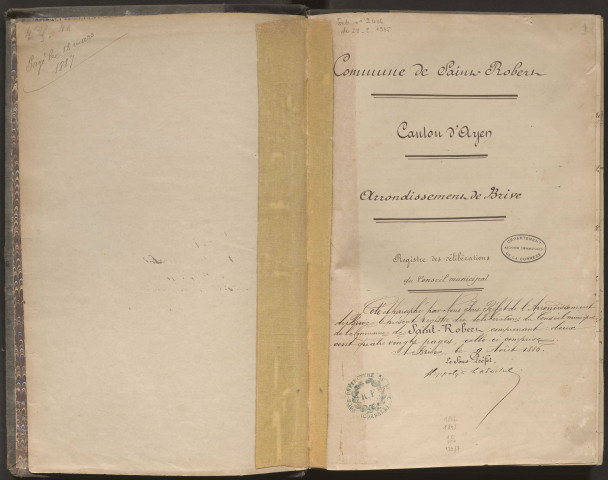 Payé le 18 mars
1887
1
Commune de Saint Robert
Canton d'Ayen
Arrondissement de Brive
DÉPARTEMENT
DE LA CORRÈZE
Registre des délibérations
du Conseil municipal
Coté et paraphé par Nous Sous Préfet de l'Arrondissement
de Brive le présent registre des délibérations du Conseil municipal
de la commune de Saint-Robert comprenant deux
cent quatre vingts pages, celle-ci comprise
A Brive, le Août
Le Sous-Préfet,
R.F